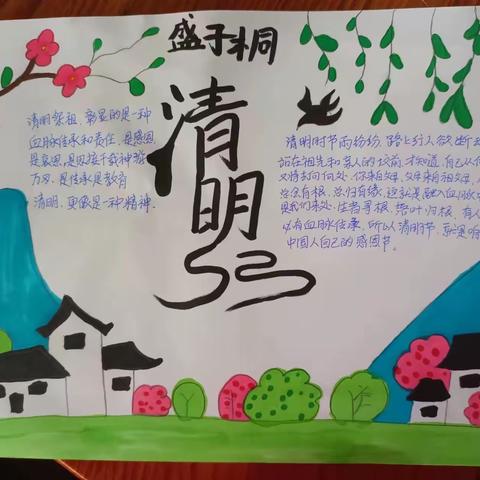 盛于桐
清明
清明祭祖,彰显的是一种
血脉传承和责任,是感恩
是哀思,是
万
是传承是教育
清明,更像是一种精神.
清明时节雨纷纷,路上行人欲断
站在祖先和亲人的坟前,才知道,自己从何
又将去向何处,你来自父母,父母来自祖父母,
总会有根,总归有缘,这就是融入血脉
是我们来处,生者寻根,落叶归根,有人
必有血脉传承,所以清明节,就是
中国人自己的感恩节。